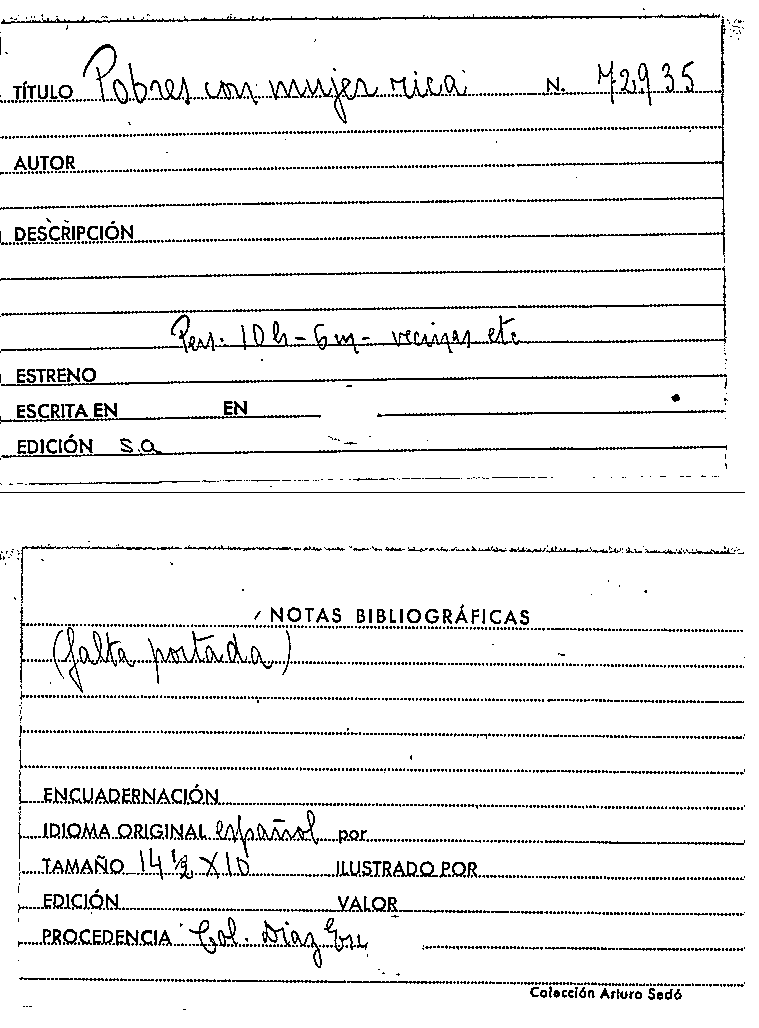 TÍTULO Pobres con mujer rica N. 72935
AUTOR
DESCRIPCIÓN
Pers: 10 h - 6 m - vecinas etc
ESTRENO
ESCRITA EN EN
EDICIÓN s.a.
NOTAS BIBLIOGRÁFICAS
(falta portada)
ENCUADERNACIÓN
IDIOMA ORIGINAL español por
TAMAÑO 14 ½ X 10 ILUSTRADO POR
EDICIÓN VALOR
PROCEDENCIA Col. Díaz
Colección Arturo Sedó